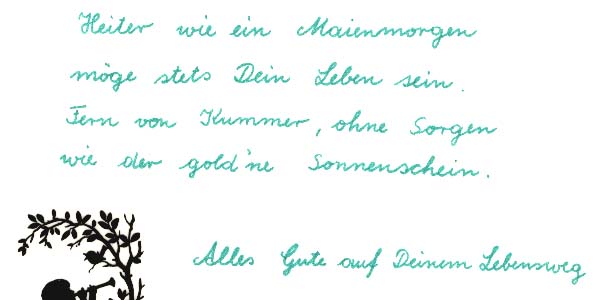 Heiter wie ein Maienmorgen
möge stets Dein Leben sein.
Fern von Kummer, ohne Sorgen
wie der gold'ne Sonnenschein.
Alles Gute auf Deinem Lebensweg